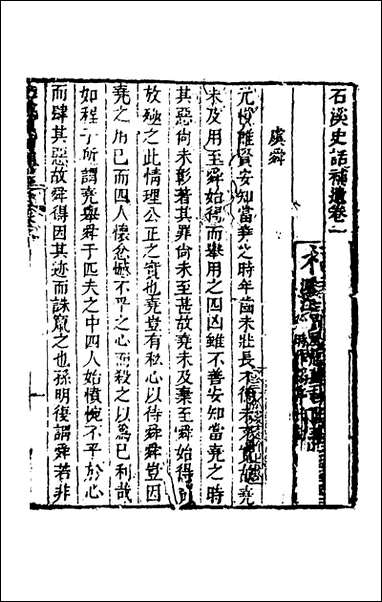 石溪史話補遺卷一
虞舜
元愷雖賢安知當堯之時年齒未壯長不德未來堯故堯
未及用至舜始擇而舉用之四凶雖不善安知當堯之時
其惡尚未彰著其罪尚未至甚故堯未及棄至舜始得
放殛之此情理公正之奇也堯豈有私心以待舜舜豈因
堯之用巳而四人懷忿憾不平之心而殺之以為巳利哉
如程子所謂堯舉舜于匹夫之中四人始憤惋不平於心
而肆其惡故舜得因其迹而誅竄之也孫明復謂舜若非